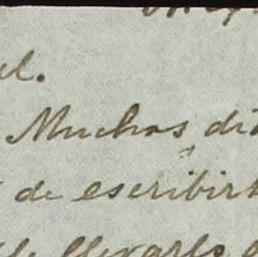 el.
Muchos di
de escribir
llevarlo